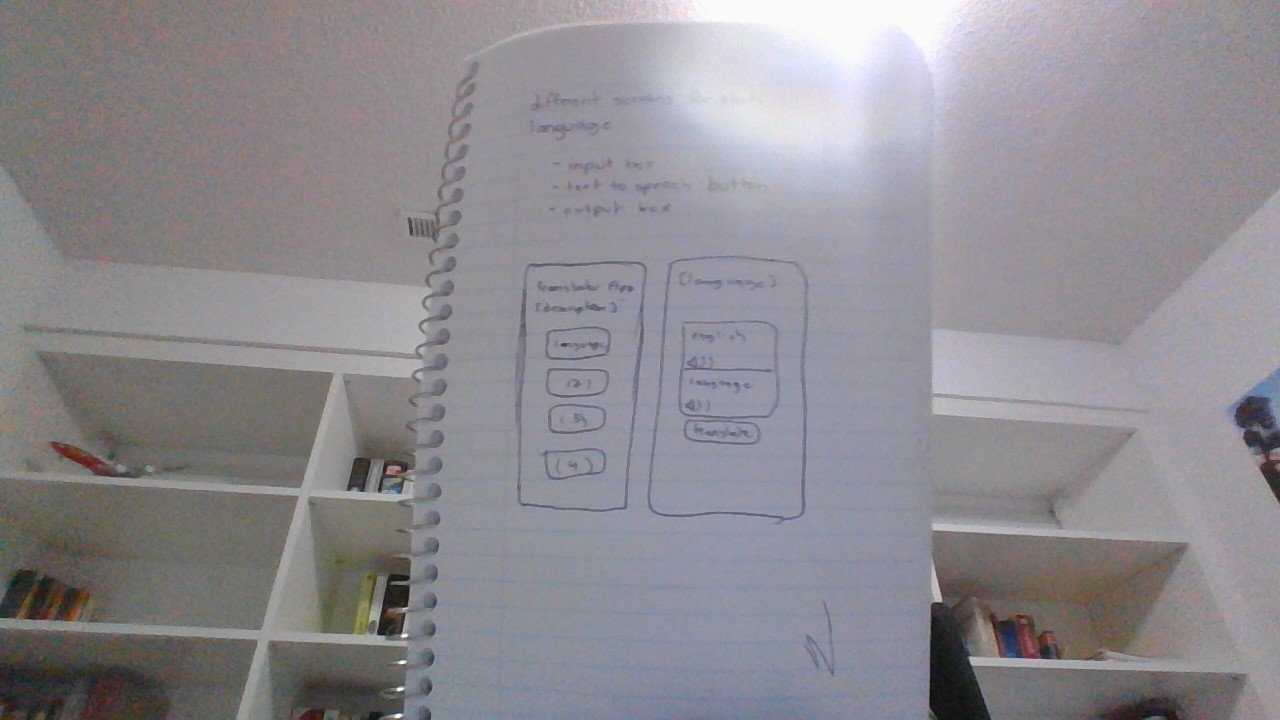 different screens for each
language
- input box
- text to speech button
- output box
Translator App
[description]
language
(2)
(3)
(4)
[language]
english
language
translate